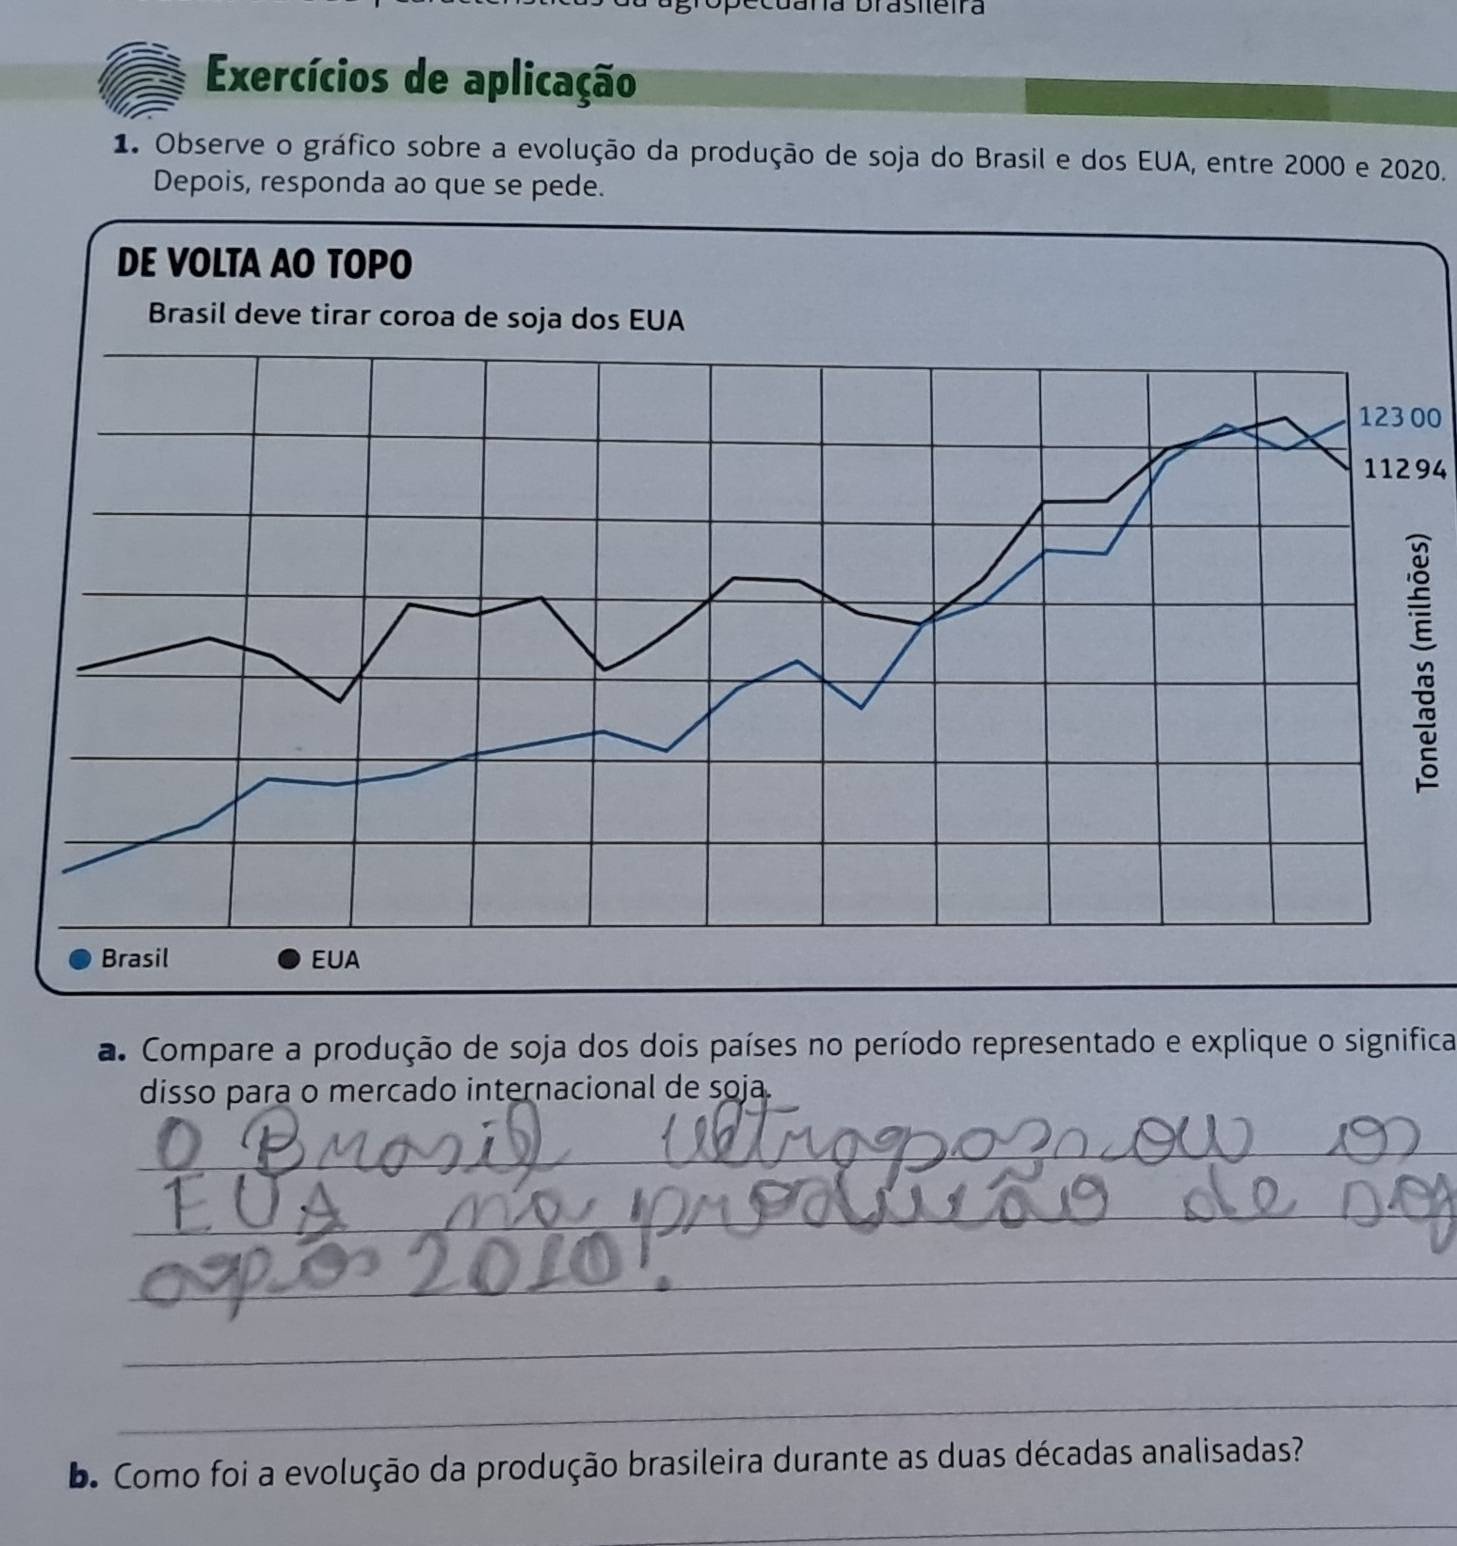 agropecuária brasileira
Exercícios de aplicação
1. Observe o gráfico sobre a evolução da produção de soja do Brasil e dos EUA, entre 2000 e 2020.
Depois, responda ao que se pede.
DE VOLTA AO TOPO
Brasil deve tirar coroa de soja dos EUA
123 00
112 94
Toneladas (milhões)
Brasil
EUA
a. Compare a produção de soja dos dois países no período representado e explique o significa
disso para o mercado internacional de soja.
O Brasil ultrapassou os
EUA na produção de soj
após 2010.
b. Como foi a evolução da produção brasileira durante as duas décadas analisadas?